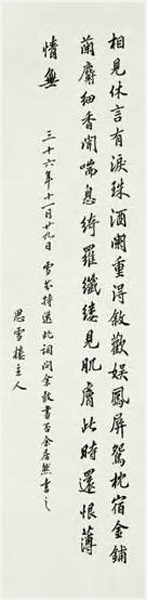 相見休言有淚珠酒闌重得敘歡娛鳳屏鴛枕宿金鋪
蘭麝細香聞喘息綺羅纖縷見肌膚此時還恨薄
情無
三十六年十一月廿九日 雪持選此詞問余敢書否余居然書之
思雪樓主人